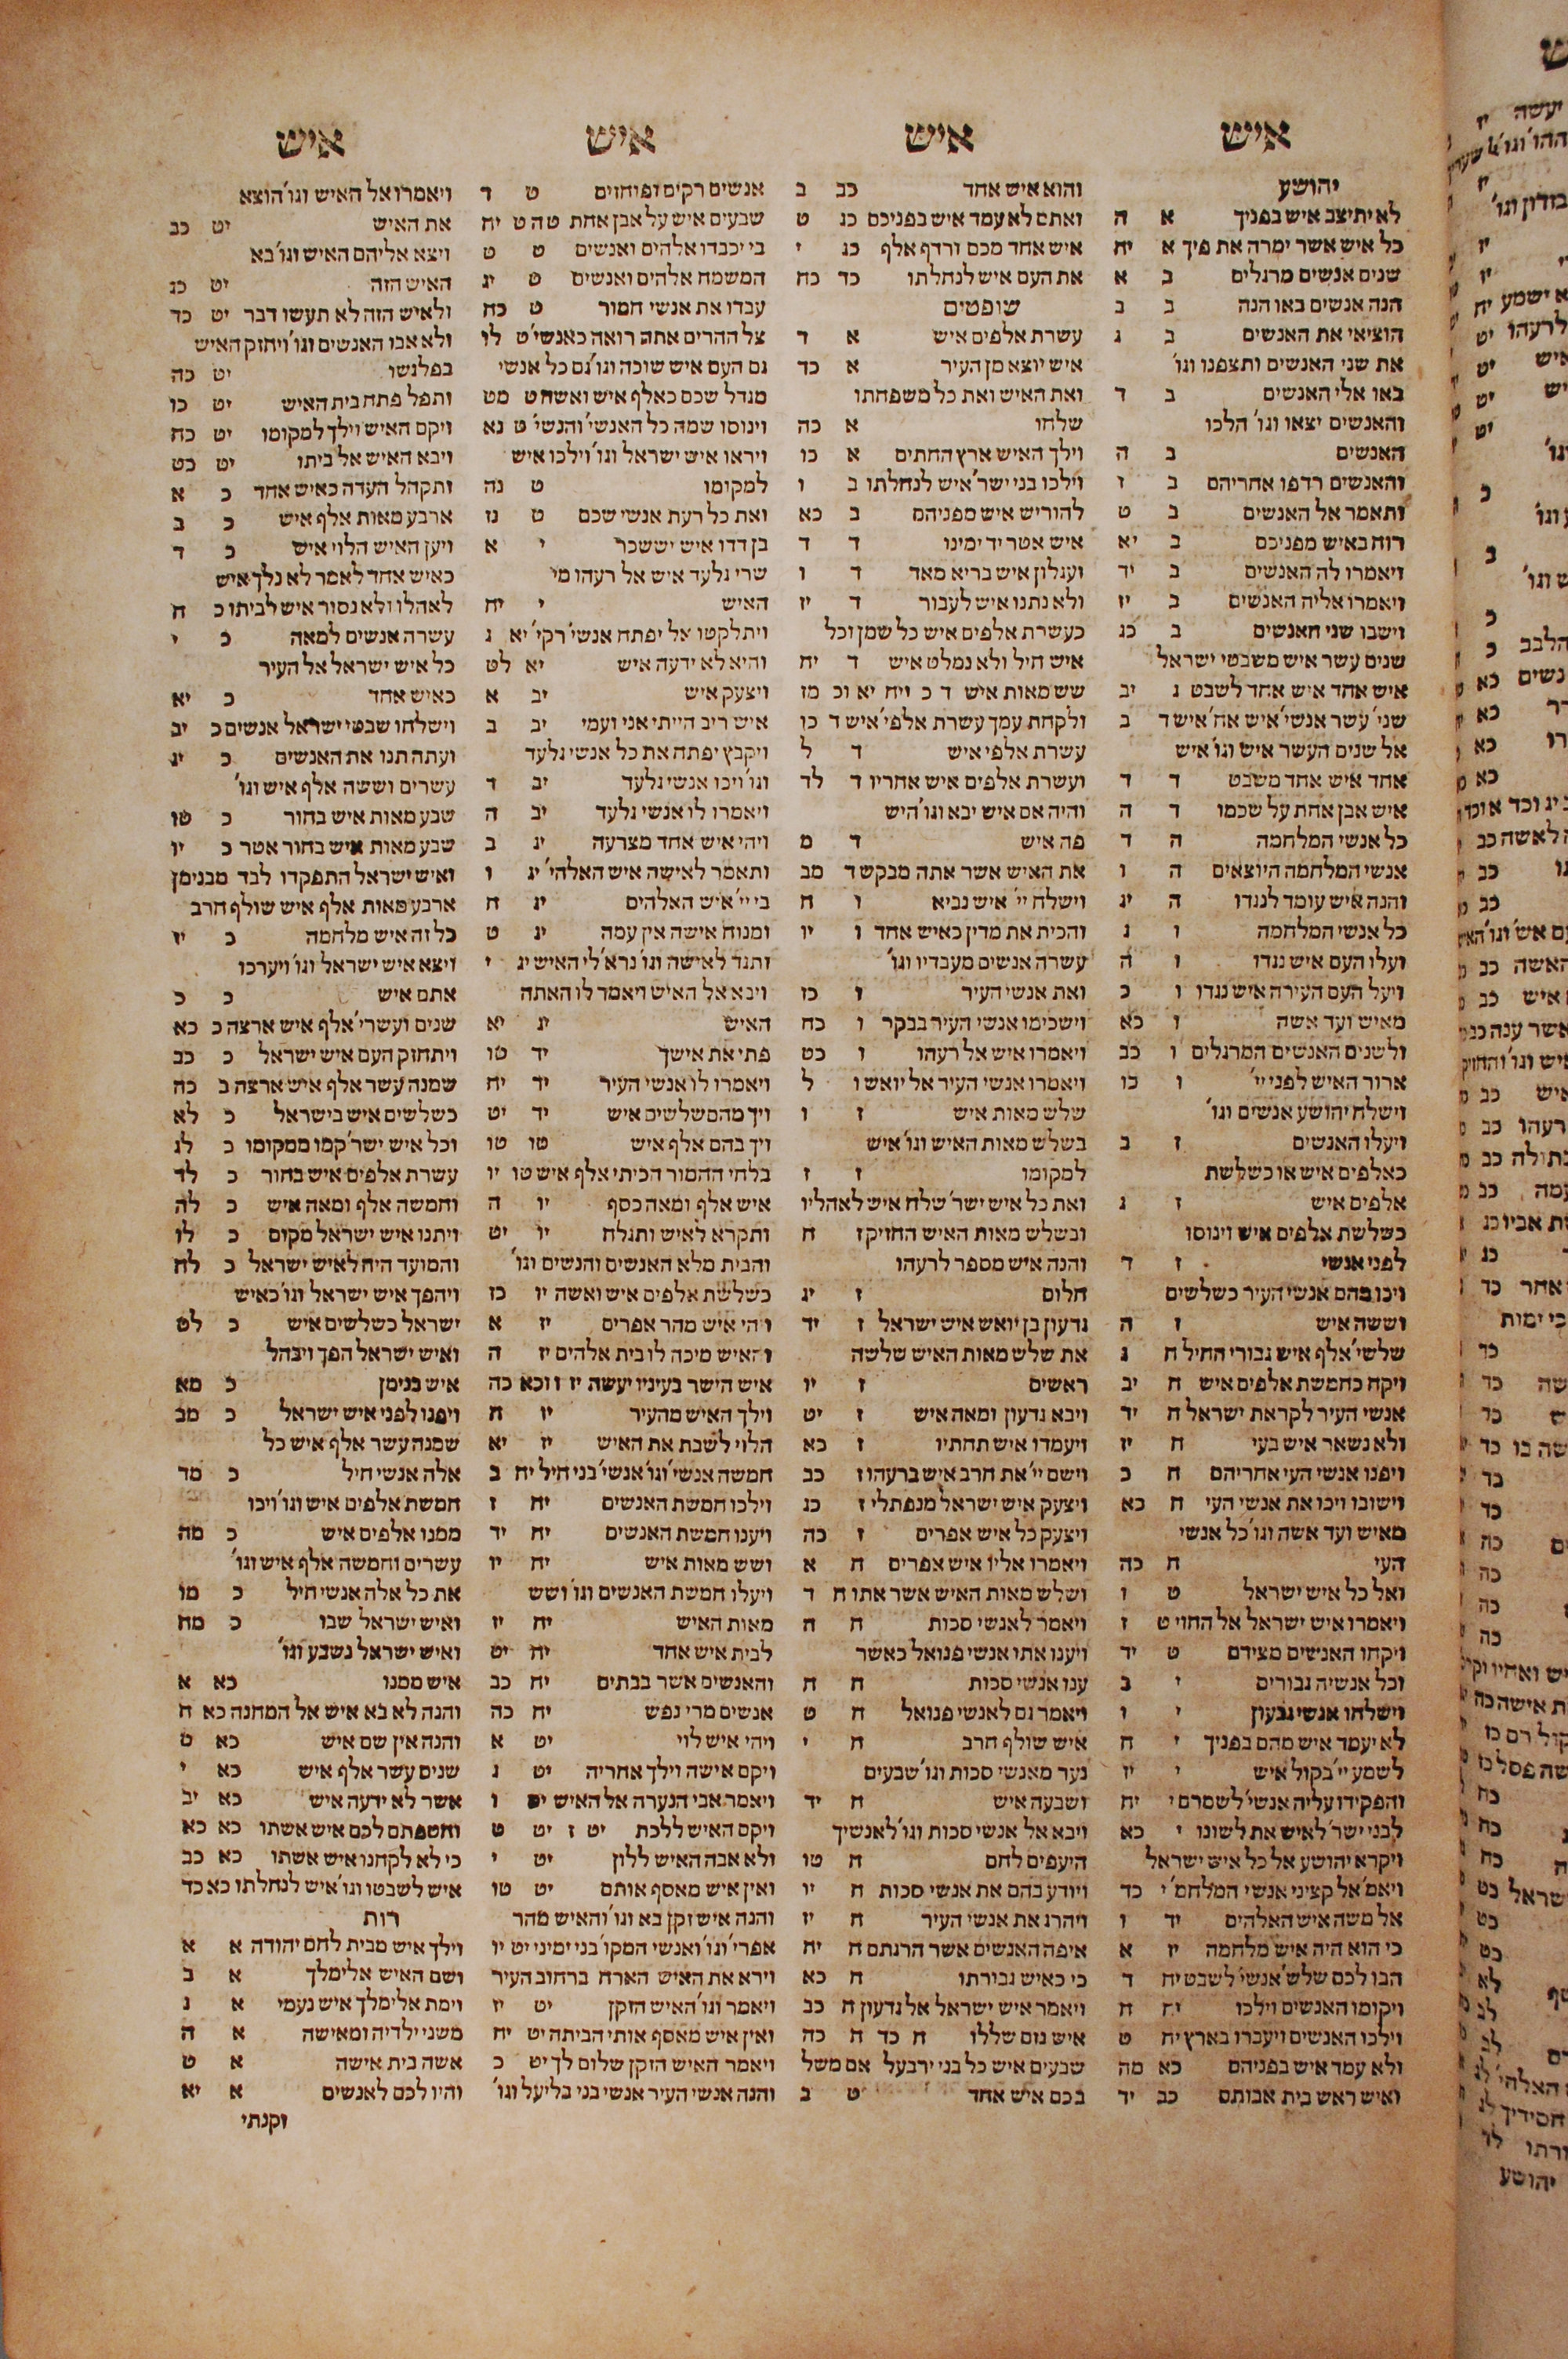 איש
יהושע
לא יתיצב איש בפניך א ה
כל איש אשר ימרה את פיך א יח
שנים אנשים מרגלים ב א
הנה אנשים באו הנה ב ב
הוציאי את האנשים ב ג
את שני האנשים ותצפנו וגו'
באו אלי האנשים ב ד
והאנשים יצאו וגו' הלכו
האנשים ב ה
והאנשים רדפו אחריהם ב ז
ותאמר אל האנשים ב ט
רוח באיש מפניכם ב יא
ויאמרו לה האנשים ב יד
ויאמרו אליה האנשים ב יז
וישבו שני האנשים ב כג
שנים עשר איש משבטי ישראל
איש אחד איש אחד לשבט ג יב
שני' עשר אנשי' איש אח' איש ד ב
אל שנים העשר איש וגו' איש
אחד איש אחד משבט ד ד
איש אבן אחת על שכמו ד ה
כל אנשי המלחמה ה ד
אנשי המלחמה היוצאים ה ו
והנה איש עומד לנגדו ה יג
כל אנשי המלחמה ו ג
ועלו העם איש נגדו ו ה
ויעל העם העירה איש נגדו ו כ
מאיש ועד אשה ו כא
ולשנים האנשים המרגלים ו כב
ארור האיש לפני יי' ו כו
וישלח יהושע אנשים וגו'
ויעלו האנשים ז ב
כאלפים איש או כשלשת
אלפים איש ז ג
כשלשת אלפים איש וינוסו
לפני אנשי ז ד
ויכו מהם אנשי העיר כשלשים
וששה איש ז ה
שלשי' אלף איש גבורי החיל ח ג
ויקח כחמשת אלפים איש ח יב
אנשי העיר לקראת ישראל ח יד
ולא נשאר איש בעי ח יז
ויפנו אנשי העי אחריהם ח כ
וישובו ויכו את אנשי העי ח כא
מאיש ועד אשה וגו' כל אנשי
העי ח כה
ואל כל איש ישראל ט ו
ויאמרו איש ישראל אל החוי ט ז
ויקחו האנשים מצידם ט יד
וכל אנשיה גבורים י ב
וישלחו אנשי גבעון י ו
לא יעמד איש מהם בפניך י ח
לשמע יי' בקול איש י יד
והפקידו עליה אנשי' לשמרם י יח
לבני ישר' לאיש את לשונו י כא
ויקרא יהושע אל כל איש ישראל
ויאמ' אל קציני אנשי המלחמ' י כד
אל משה איש האלהים יד ו
כי הוא היה איש מלחמה יז א
הבו לכם שלש' אנשי' לשבט יח ד
ויקומו האנשים וילכו יח ח
וילכו האנשים ויעברו בארץ יח ט
ולא עמד איש בפניהם כא מה
ואיש ראש בית אבותם כב יד
איש
והוא איש אחד כב כ
ואתם לא עמד איש בפניכם כג ט
איש אחד מכם ירדף אלף כג י
את העם איש לנחלתו כד כח
שופטים
עשרת אלפים איש א ד
איש יוצא מן העיר א כד
ואת האיש ואת כל משפחתו
שלחו א כה
וילך האיש ארץ החתים א כו
וילכו בני ישר' איש לנחלתו ב ו
להוריש איש מפניהם ב כא
איש אטר יד ימינו ד ד
ועגלון איש בריא מאד ד ו
ולא נתנו איש לעבור ד יז
כעשרת אלפים איש כל שמן וכל
איש חיל ולא נמלט איש ד יח
שש מאות איש ד כ ויח יא וכ מז
ולקחת עמך עשרת אלפי' איש ד כו
עשרת אלפי איש ד ל
ועשרת אלפים איש אחריו ד לד
והיה אם איש יבא וגו' היש
פה איש ד מ
את האיש אשר אתה מבקש ד מב
וישלח יי' איש נביא ו ח
והכית את מדין כאיש אחד ו יו
עשרה אנשים מעבדיו וגו'
ואת אנשי העיר ז כז
וישכימו אנשי העיר בבקר ו כח
ויאמרו איש אל רעהו ו כט
ויאמרו אנשי העיר אל יואש ו ל
שלש מאות איש ז ו
בשלש מאות האיש וגו' איש
למקומו ז ז
ואת כל איש ישר' שלח איש לאהליו
ובשלש מאות האיש החזיק ז ח
והנה איש מספר לרעהו
חלום ז יג
גדעון בן יואש איש ישראל ז יד
את שלש מאות האיש שלשה
ראשים ז יו
ויבא גדעון ומאה איש ז יט
ויעמדו איש תחתיו ז כא
וישם יי' את חרב איש ברעהו ז כב
ויצעק איש ישראל מנפתלי ז כג
ויצעק כל איש אפרים ז כה
ויאמרו אליו איש אפרים ח א
ושלש מאות האיש אשר אתו ח ד
ויאמר לאנשי סכות ח ה
ויענו אתו אנשי פנואל כאשר
ענו אנשי סכות ח ח
ויאמר גם לאנשי פנואל ח ט
איש שולף חרב ח י
נער מאנשי סכות וגו' שבעים
ושבעה איש ח יד
ויבא אל אנשי סכות וגו' לאנשיך
היעפים לחם ח טו
ויודע בהם את אנשי סכות ח יו
ויהרג את אנשי העיר ח יז
איפה האנשים אשר הרגתם ח יח
כי כאיש גבורתו ח כא
ויאמר איש ישראל אל גדעון ח כב
איש נזם שללו ח כד ח כה
שבעים איש כל בני ירבעל אם משל
בכם איש אחד ט ב
איש
אנשים רקים ופוחזים ט ד
שבעים איש על אבן אחת ט ה ט יח
בי יכבדו אלהים ואנשים ט ט
המשמח אלהים ואנשים ט יג
עבדו את אנשי חמור ט כח
צל ההרים אתה רואה כאנשי' ט לו
גם העם איש שוכה וגו' גם כל אנשי
מגדל שכם כאלף איש ואשה ט מט
וינוסו שמה כל האנשי' והנשי' ט נא
ויראו איש ישראל וגו' וילכו איש
למקומו ט נה
ואת כל רעת אנשי שכם ט נז
בן דדו איש יששכר י א
שרי גלעד איש אל רעהו מי
האיש י יח
ויתלקטו אל יפתח אנשי' רקי' יא ג
והיא לא ידעה איש יא לט
ויצעק איש יב א
איש ריב הייתי אני ועמי יב ב
ויקבץ יפתח את כל אנשי גלעד
וגו' ויכו אנשי גלעד יב ד
ויאמרו לו אנשי גלעד יב ה
ויהי איש אחד מצרעה יג ב
ותאמר לאישה איש האלהי' יג ו
בי יי' איש האלהים יג ח
ומנוח אישה אין עמה יג ט
ותגד לאישה וגו' נרא' לי האיש יג י
ויבא אל האיש ויאמר לו האתה
האיש יג יא
פתי את אישך יד טו
ויאמרו לו אנשי העיר יד יח
ויך מהם שלשים איש יד יט
ויך בהם אלף איש טו טו
בלחי החמור הכיתי אלף איש טו יו
איש אלף ומאה כסף יו ה
ותקרא לאיש ותגלח יו יט
והבית מלא האנשים והנשים וגו'
כשלשת אלפים איש ואשה יו כז
ויהי איש מהר אפרים יז א
והאיש מיכה לו בית אלהים יז ה
איש הישר בעיניו יעשה יז ו וכא כה
וילך האיש מהעיר יז ח
הלוי לשבת את האיש יז יא
חמשה אנשי' וגו' אנשי' בני חיל יח ב
וילכו חמשת האנשים יח ז
ויענו חמשת האנשים יח יד
ושש מאות איש יח יו
ויעלו חמשת האנשים וגו' ושש
מאות האיש יח יז
לבית איש אחד יח יט
והאנשים אשר בבתים יח כב
אנשים מרי נפש יח כה
ויהי איש לוי יט א
ויקם אישה וילך אחריה יט ג
ויאמר אבי הנערה אל האיש יט ו
ויקם האיש ללכת יט ז יט ט
ולא אבה האיש ללון יט י
ואין איש מאסף אותם יט טו
והנה איש זקן בא וגו' והאיש מהר
אפרי' וגו' ואנשי המקו' בני ימיני יט יו
וירא את האיש הארח ברחוב העיר
ויאמר וגו' האיש הזקן יט יז
ואין איש מאסף אותי הביתה יט יח
ויאמר האיש הזקן שלום לך יט כ
והנה אנשי העיר אנשי בני בליעל וגו'
איש
ויאמרו אל האיש וגו' הוצא
את האיש יט כב
ויצא אליהם האיש וגו' בא
האיש הזה יט כג
ולאיש הזה לא תעשו דבר יט כד
ולא אבו האנשים וגו' ויחזק האיש
בפלגשו יט כה
ותפל פתח בית האיש יט כו
ויקם האיש וילך למקומו יט כח
ויבא האיש אל ביתו יט כט
ותקהל העדה כאיש אחד כ א
ארבע מאות אלף איש כ ב
ויען האיש הלוי איש כ ד
כאיש אחד לאמר לא נלך איש
לאהלו ולא נסור איש לביתו כ ח
עשרה אנשים למאה כ י
כל איש ישראל אל העיר
כאיש אחד כ יא
וישלחו שבטי ישראל אנשים כ יב
ועתה תנו את האנשים כ יג
עשרים וששה אלף איש וגו'
שבע מאות איש בחור כ טו
שבע מאות איש בחור אטר כ יו
ואיש ישראל התפקדו לבד מבנימן
ארבע מאות אלף איש שולף חרב
כל זה איש מלחמה כ יז
ויצא איש ישראל וגו' ויערכו
אתם איש כ כ
שנים ועשרי' אלף איש ארצה כ כא
ויתחזק העם איש ישראל כ כב
שמנה עשר אלף איש ארצה כ כה
כשלשים איש בישראל כ לא
וכל איש ישר' קמו ממקומו כ לג
עשרת אלפים איש בחור כ לד
וחמשה אלף ומאה איש כ לה
ויתנו איש ישראל מקום כ לו
והמועד היה לאיש ישראל כ לח
ויהפך איש ישראל וגו' כאיש
ישראל כשלשים איש כ לט
ואיש ישראל הפך ויבהל
איש בנימן כ מא
ויפנו לפני איש ישראל כ מב
שמנה עשר אלף איש כל
אלה אנשי חיל כ מד
חמשת אלפים איש וגו' ויכו
ממנו אלפים איש כ מה
עשרים וחמשה אלף איש וגו'
את כל אלה אנשי חיל כ מו
ואיש ישראל שבו כ מח
ואיש ישראל נשבע וגו'
איש ממנו כא א
והנה לא בא איש אל המחנה כא ח
והנה אין שם איש כא ט
שנים עשר אלף איש כא י
אשר לא ידעה איש כא יב
וחטפתם לכם איש אשתו כא כא
כי לא לקחנו איש אשתו כא כב
איש לשבטו וגו' איש לנחלתו כא כד
רות
וילך איש מבית לחם יהודה א א
ושם האיש אלימלך א ב
וימת אלימלך איש נעמי א ג
משני ילדיה ומאישה א ה
אשה בית אישה א ט
והיו לכם לאנשים א יא
זקנתי